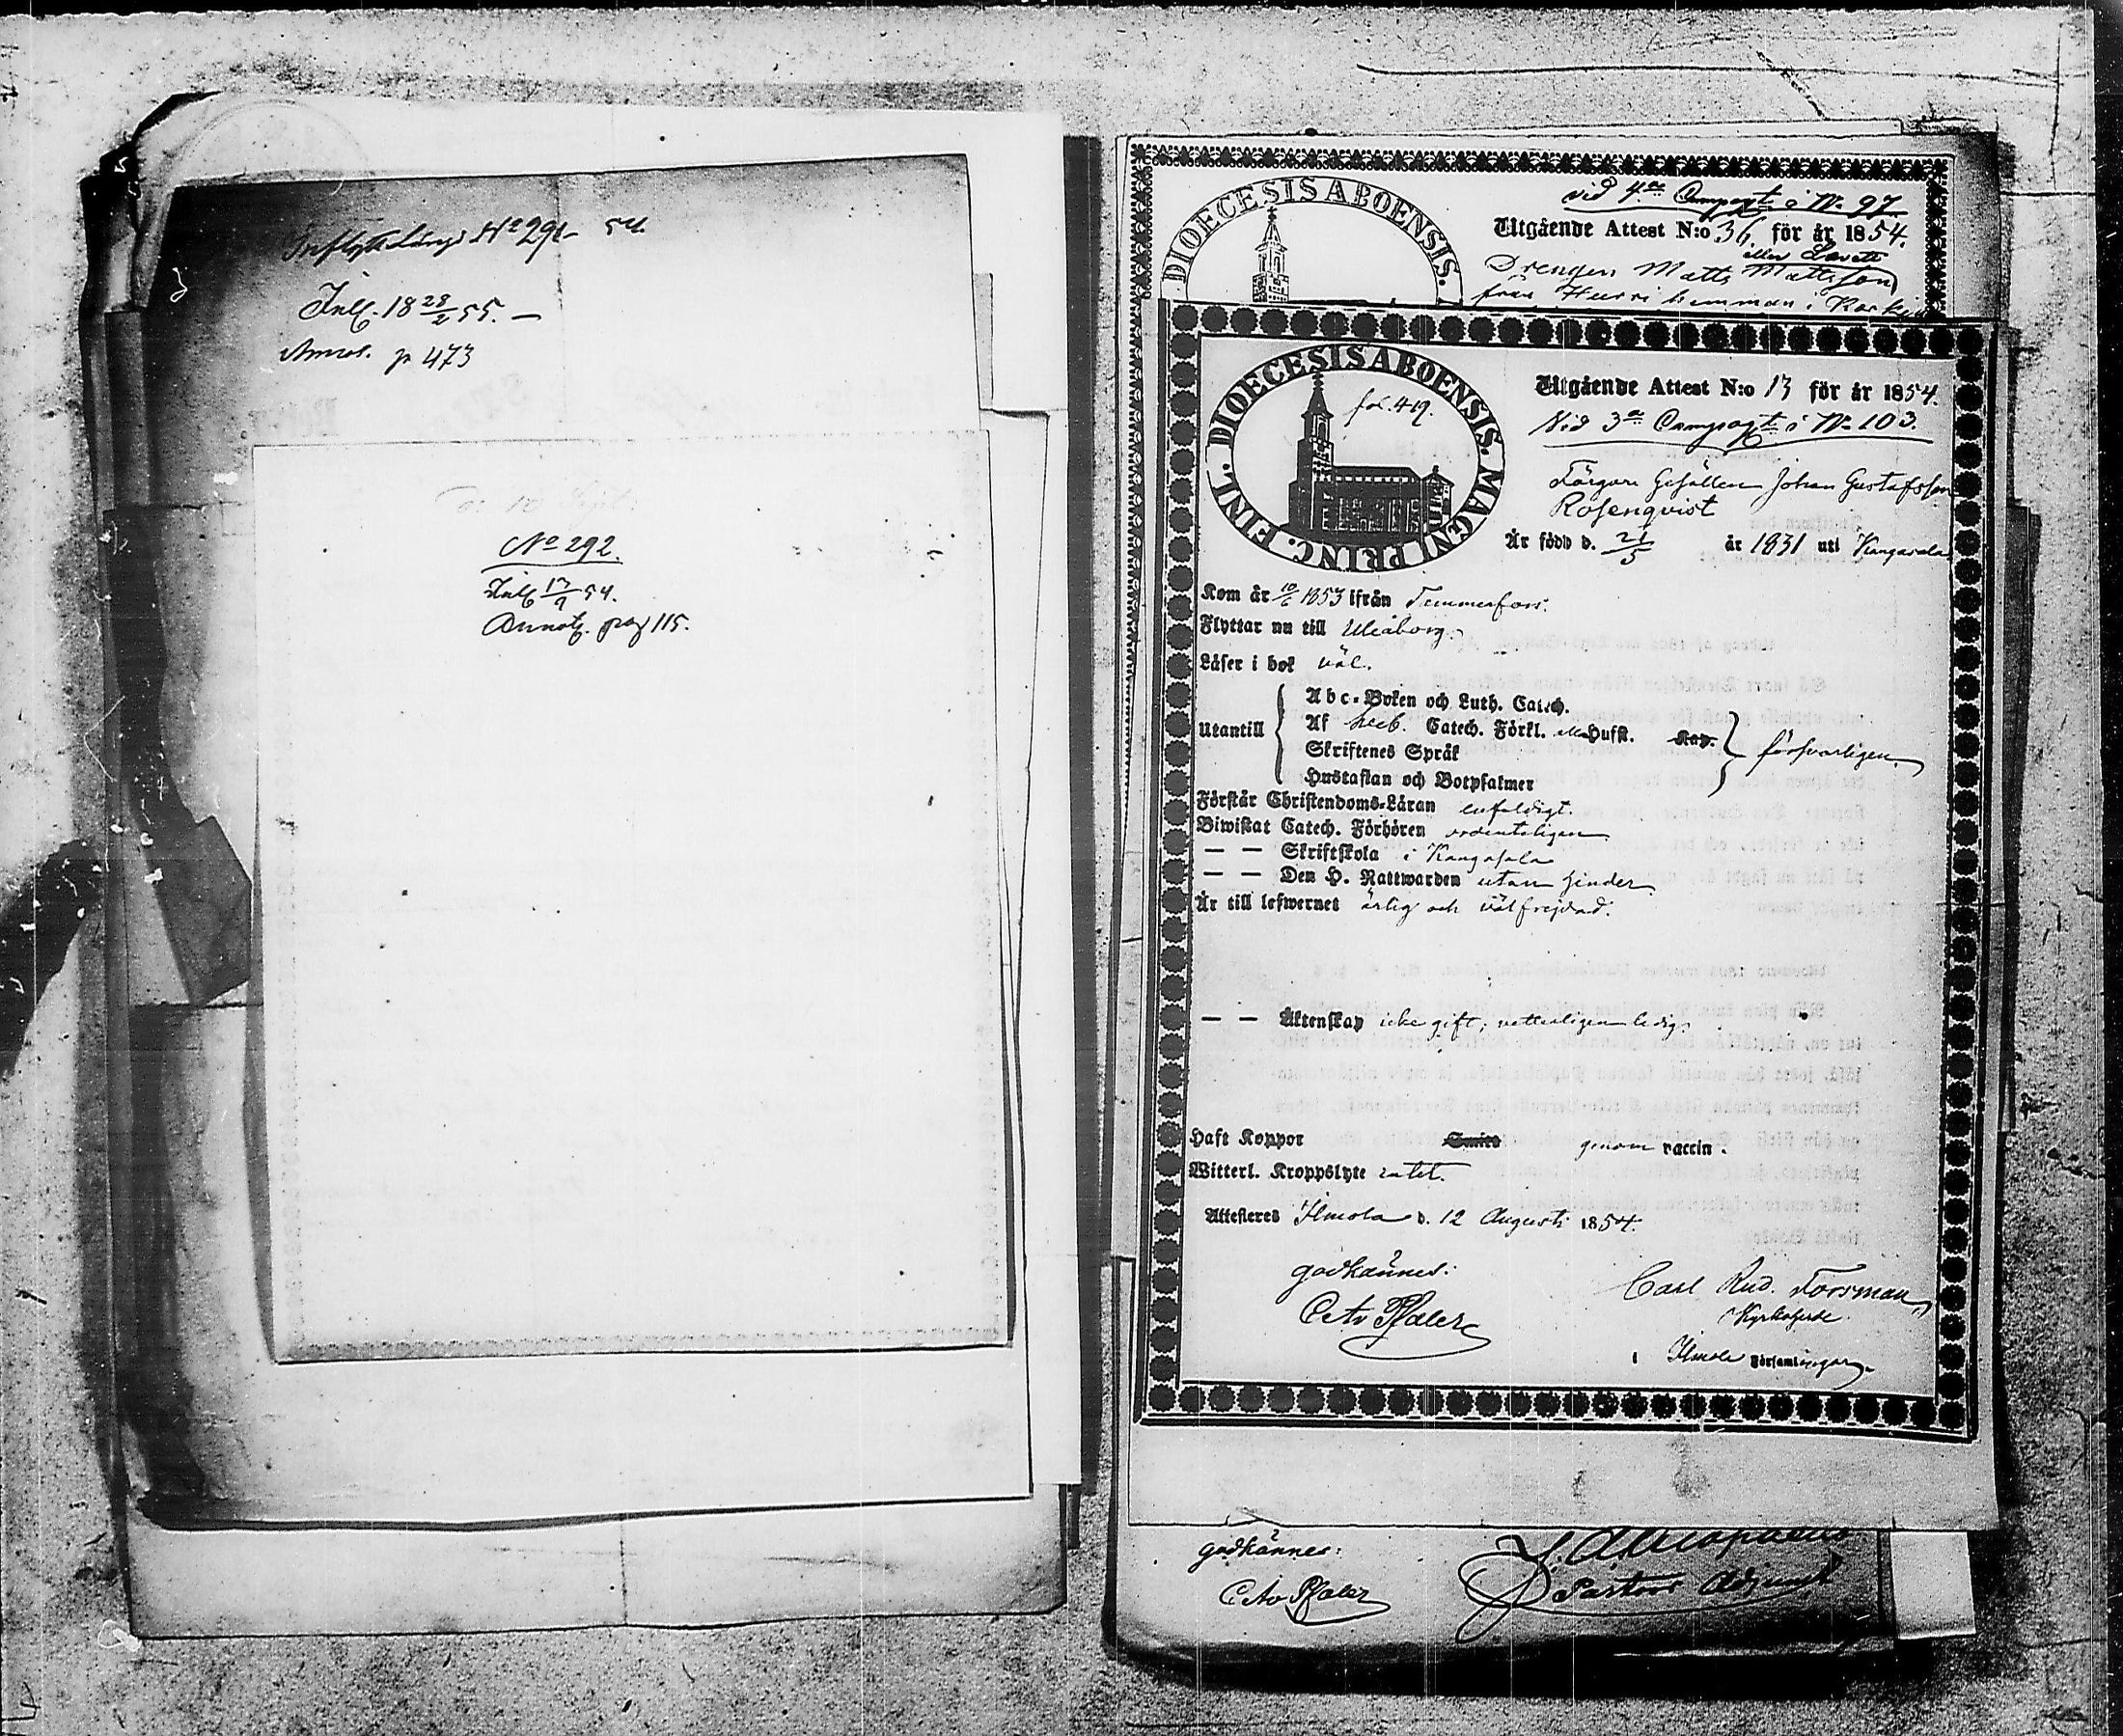 Inflyttelängd No 291 54.
Inl. 18 28/2 55. —
Annot. p 473
No 292.
Inl 17/9 54.
Annot. pag 115.
DIOECESIS ABOENSIS.
Vid 4de Compagt i No 97
Utgående Attest N:o 36 för år 1854.
eller
Drengen Matts Mattsson
från hemman i
DIOECESIS ABOENSIS. MAGNI PRINC. FINL.
fol. 419.
Utgående Attest N:o 13 för år 1854.
Vid 3de Compagt i No 103.
Färgare Gesällen Johan Gustafsson
Rosenqvist
Är född d. 21/5 år 1831 uti Kangasala
Kom år 10/6 1853 ifrån Tammerfors.
Flyttar nu till Uleåborg.
Läser i bok väl.
Utantill
Abc-Boken och Luth. Catech.
Af Sveb. Catech. Förkl. Hufst. Kap.
Skriftenes Språk
Hustaflan och Botpsalmer
försvarligen
Förstår Christendoms-Läran enfaldigt.
Biwistat Catech. Förhören ordentligen
— — Skriftskola i Kangasala
— — Den H. Nattwarden utan hinder
Är till lefwernet ärlig och välfrejdad.
— — Äktenskap icke gift; vetterligen ledig.
Haft Koppor genom vaccin.
Witterl. Kroppslyte intet.
Attesteres Ilmola d. 12 Augusti 1854.
godkännes:
Carl Rud. Forsman
Kyrkoherde
i Ilmola Församlingar
godkännes:
Pastors Adjunct